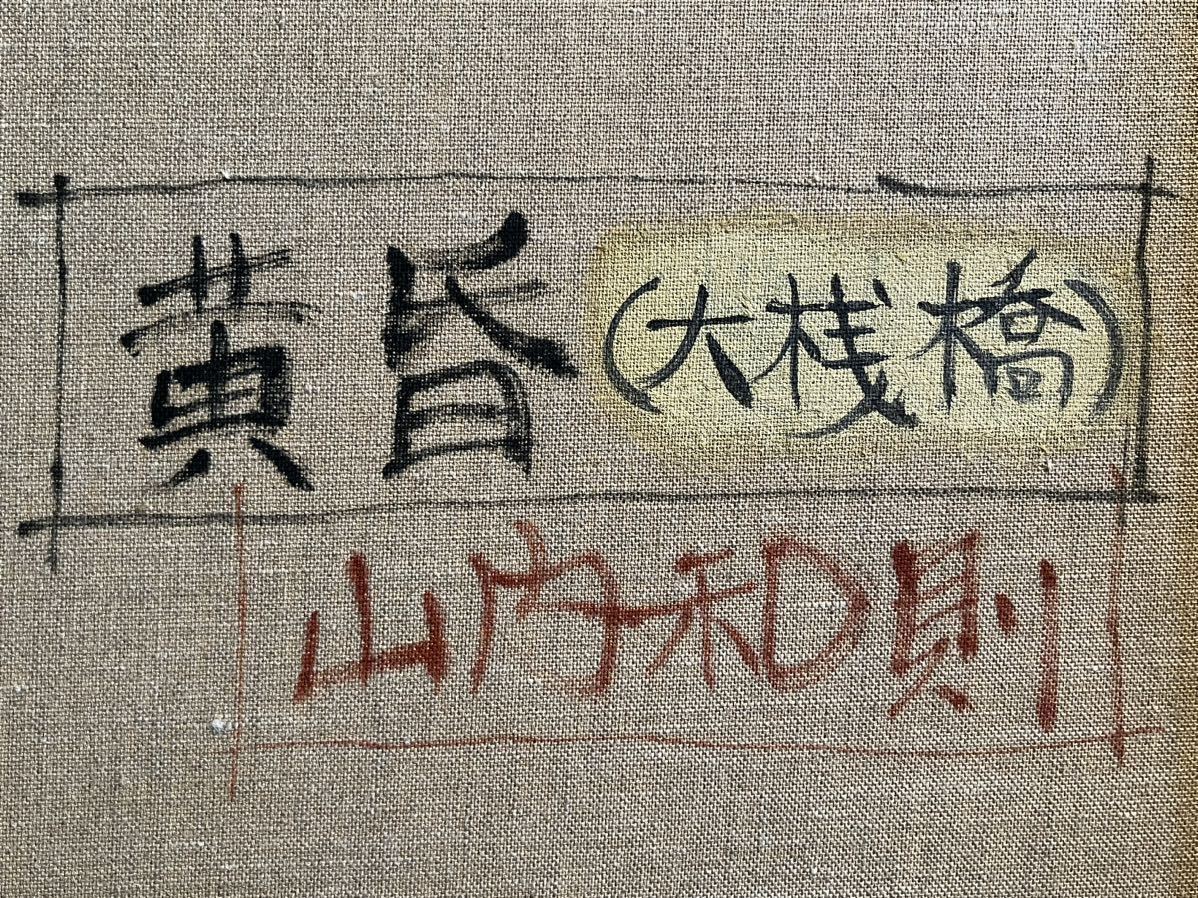 黄昏(大桟橋)
山内和則